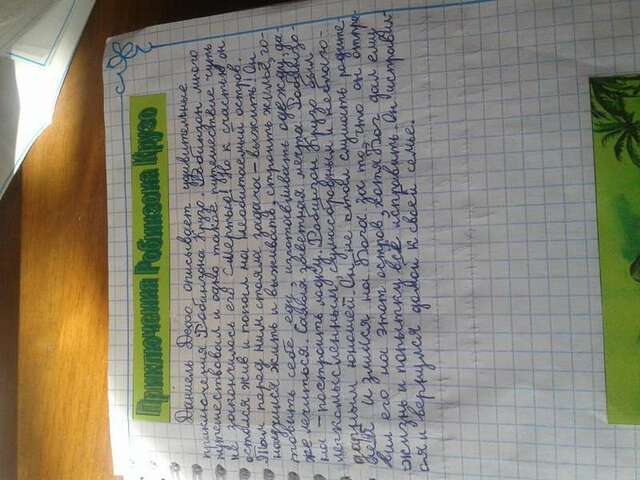 Приключения Робинзона Крузо
Даниель Дефо описывает удивительные
приключения Робинзона Крузо. Робинзон много
путешествовал и одно такое путешествие чуть
не закончилось его смертью! Но к счастью он
остался жив и попал на необитаемый остров.
Там перед ним стояла задача – выжить! Он
научился жить и выживать, строить жильё, го-
товить себе еду, изготавливать одежду, да-
же лечиться. Самая заветная мечта Робинзо-
на – построить лодку. Робинзон Крузо был
легкомысленным, сумасбродным и неблаго-
дарным юношей. Он не стал слушать родите-
лей и злился на Бога за то, что он отпра-
вил его на этот остров, хотя Бог дал ему
жизнь и попытку всё исправить. Он исправил-
ся и вернулся домой к своей семье.